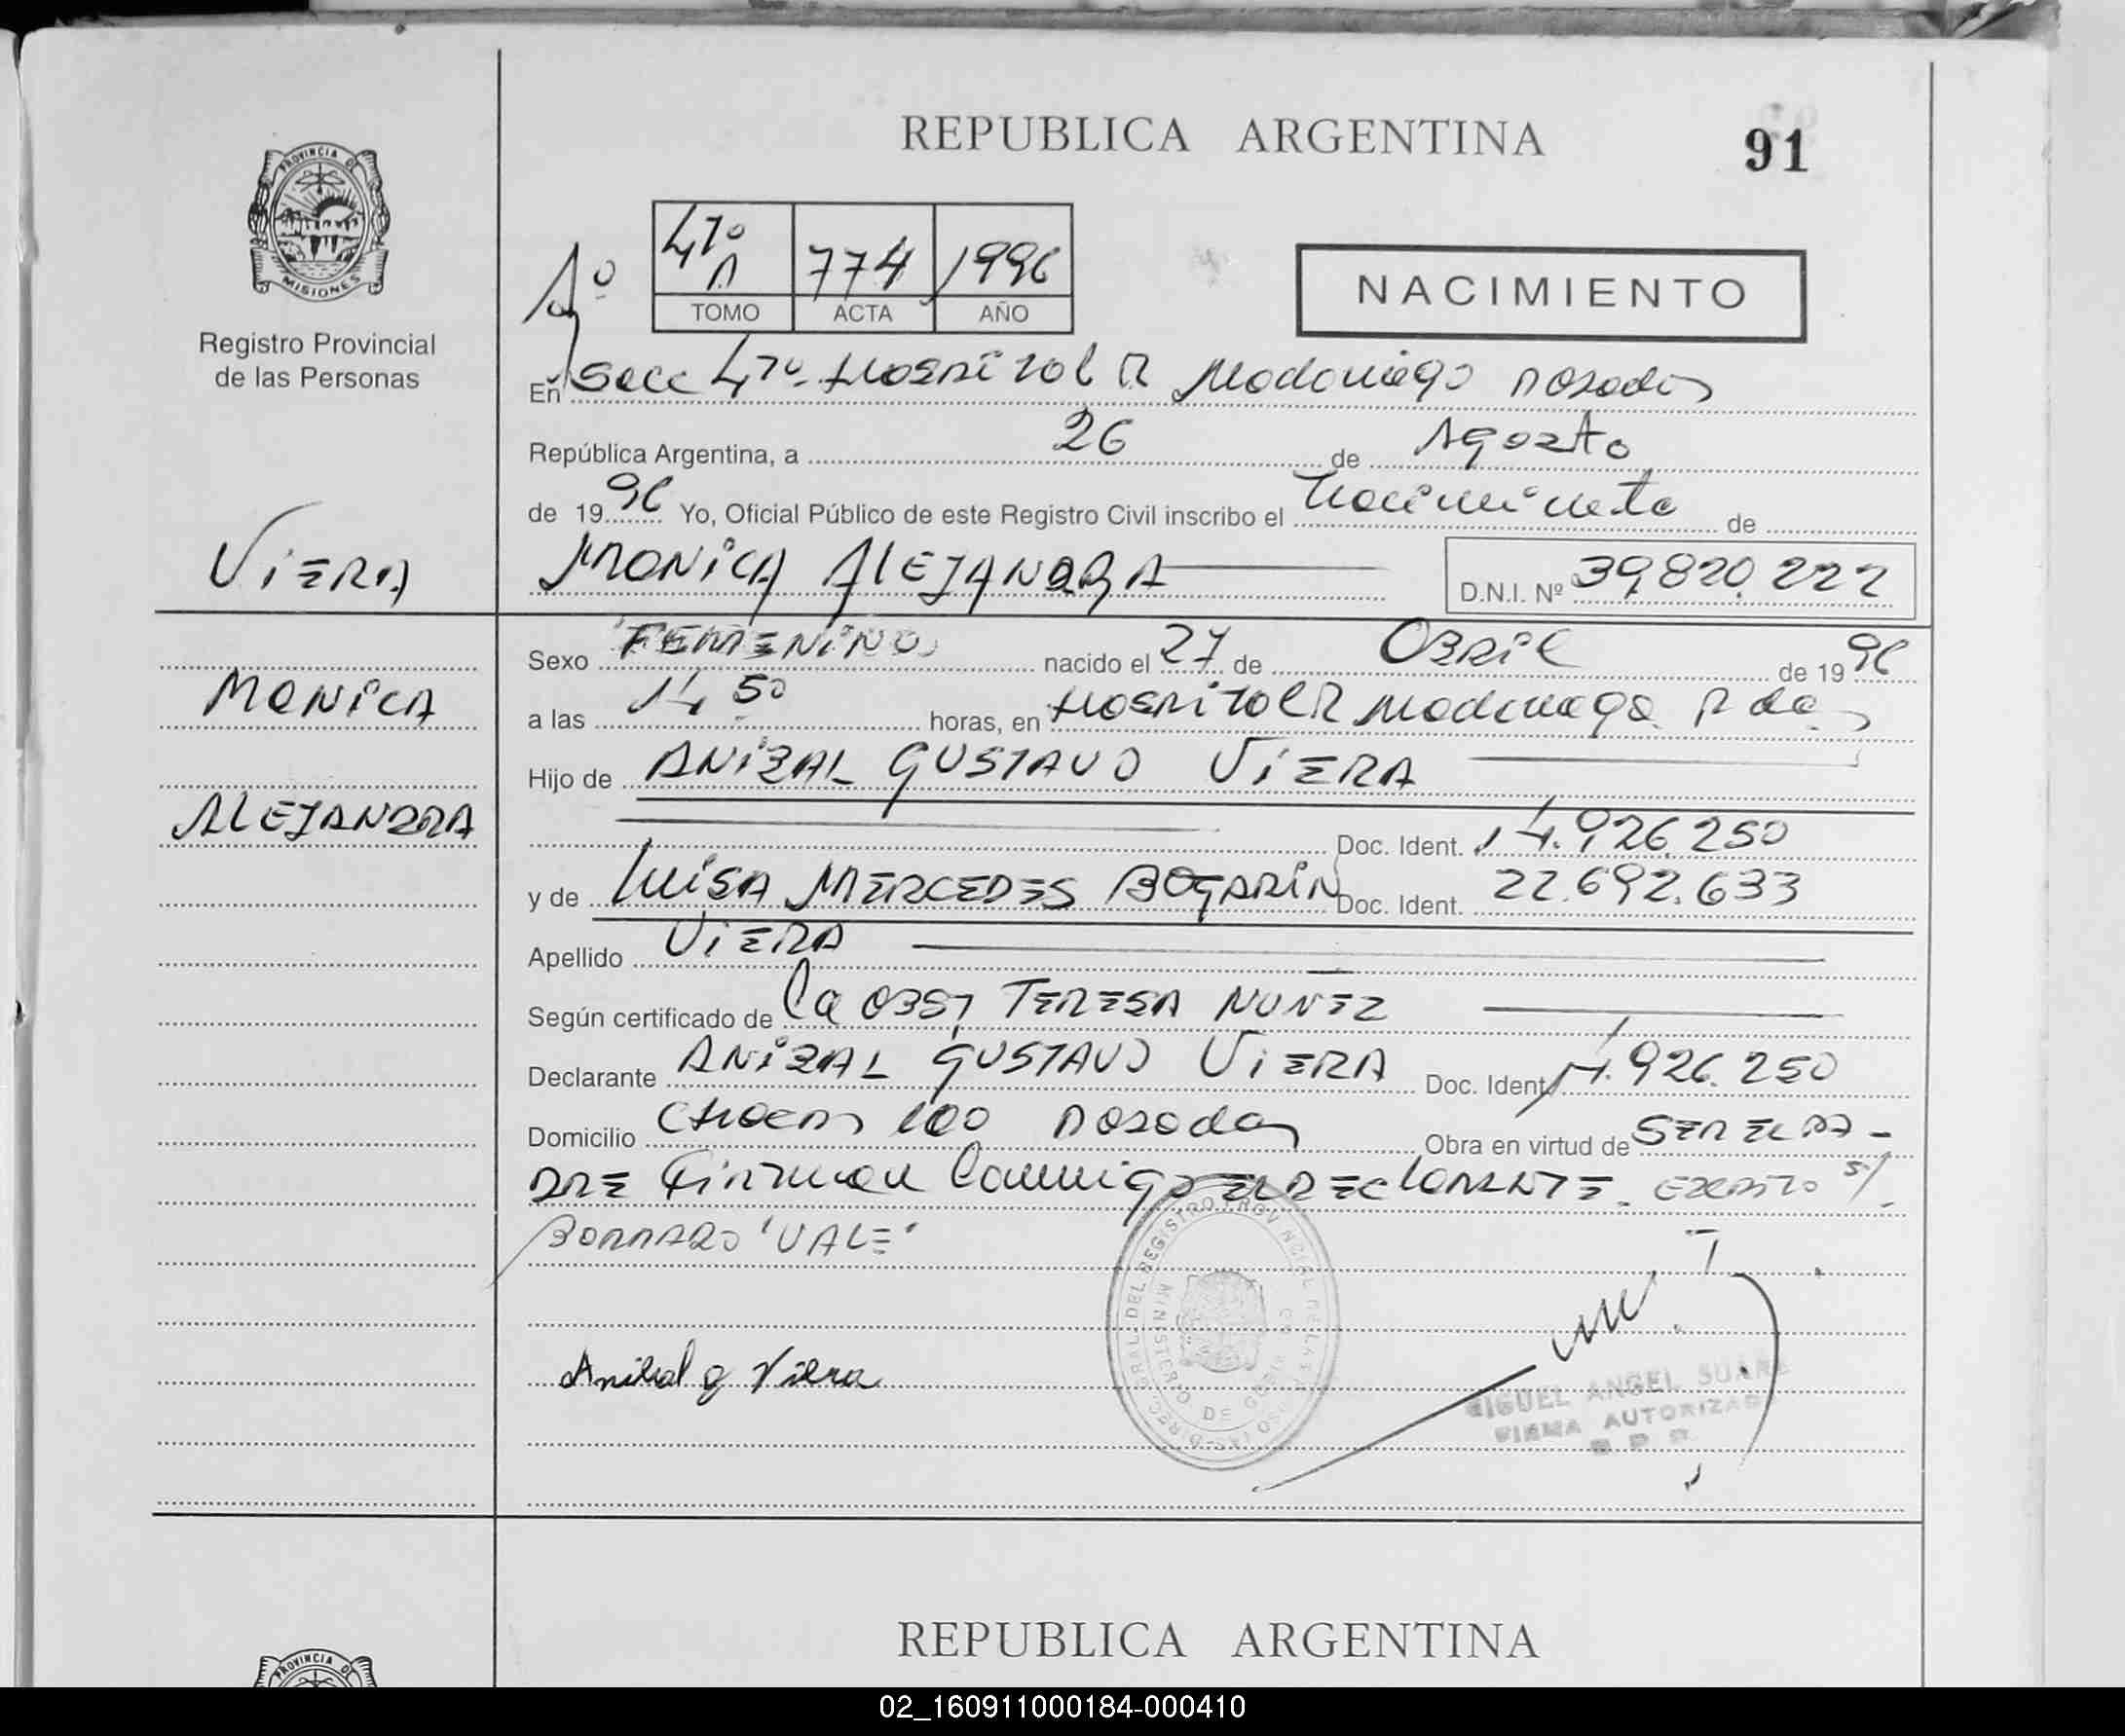 REPUBLICA ARGENTINA
91
PROVINCIA DE
MISIONES
Registro Provincial
de las Personas
4to A 774 1996
TOMO ACTA AÑO
NACIMIENTO
En Secc 4to Hospital R Madariaga Posadas
República Argentina, a 26 de Agosto
de 1996 Yo, Oficial Público de este Registro Civil inscribo el nacimiento de
VIERA
MONICA ALEJANDRA
D.N.I. Nº 39.820.222
Sexo FEMENINO nacido el 27 de ABRIL de 1996
MONICA
a las 14 50 horas, en Hospital R Madariaga Pdas
Hijo de ANIBAL GUSTAVO VIERA
ALEJANDRA
Doc. Ident. 14.926.250
y de LUISA MERCEDES BOGARIN Doc. Ident. 22.692.633
Apellido VIERA
Según certificado de la OBST TERESA NUNEZ
Declarante ANIBAL GUSTAVO VIERA Doc. Ident. 14.926.250
Domicilio 100 Posadas Obra en virtud de SER EL PA-
DRE Firman Conmigo EL DECLARANTE. s/
BORRADO "VALE"
Anibal g Viera
MIGUEL ANGEL SUARE
FIRMA AUTORIZADA
R P P
REPUBLICA ARGENTINA
PROVINCIA DE
02_160911000184-000410